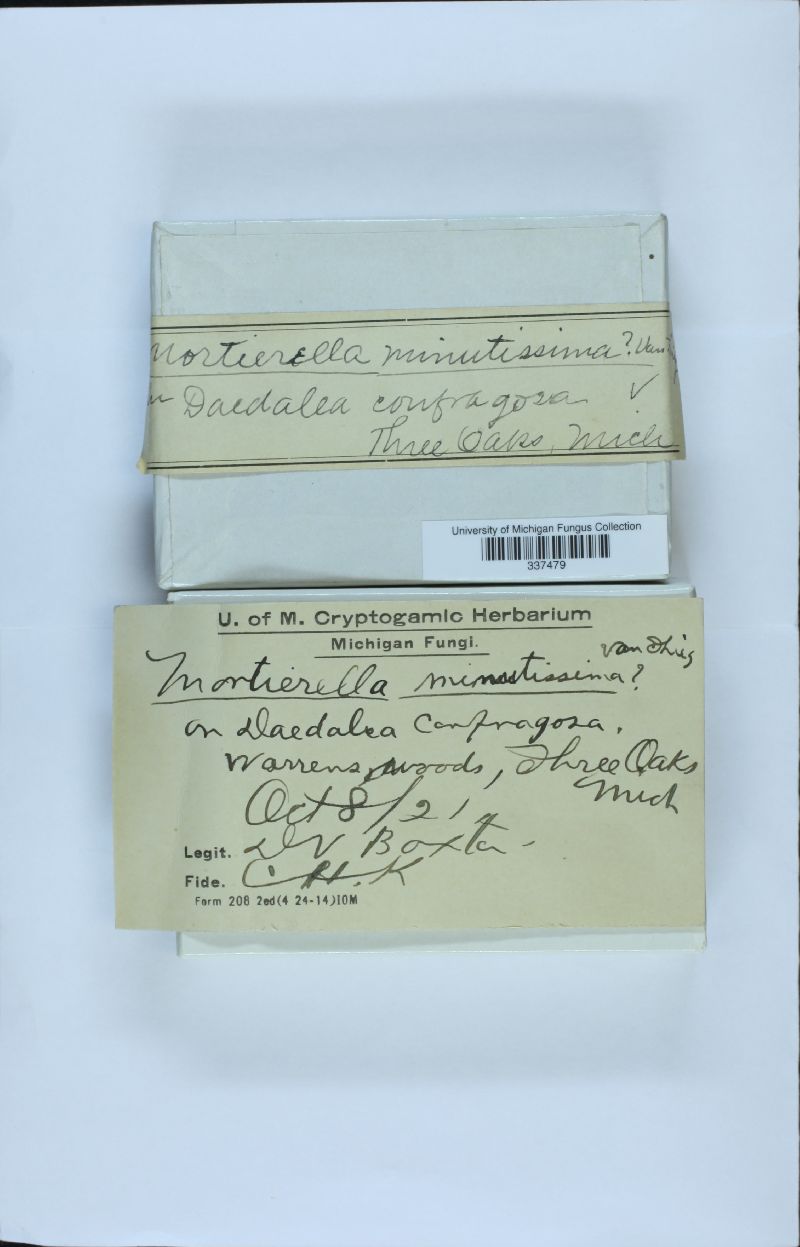 Mortierella minutissima? Van
Daedalea confragosa ✓
Three Oaks, Mich
University of Michigan Fungus Collection
337479
U. of M. Cryptogamic Herbarium
Michigan Fungi.
van Thieg
Mortierella minutissima?
on Daedalea confragosa.
Warrens woods, Three Oaks
Mich
Oct 8/21
Legit. D V Baxter
Fide. C H. K
Form 208 2ed(4 24-14)10M